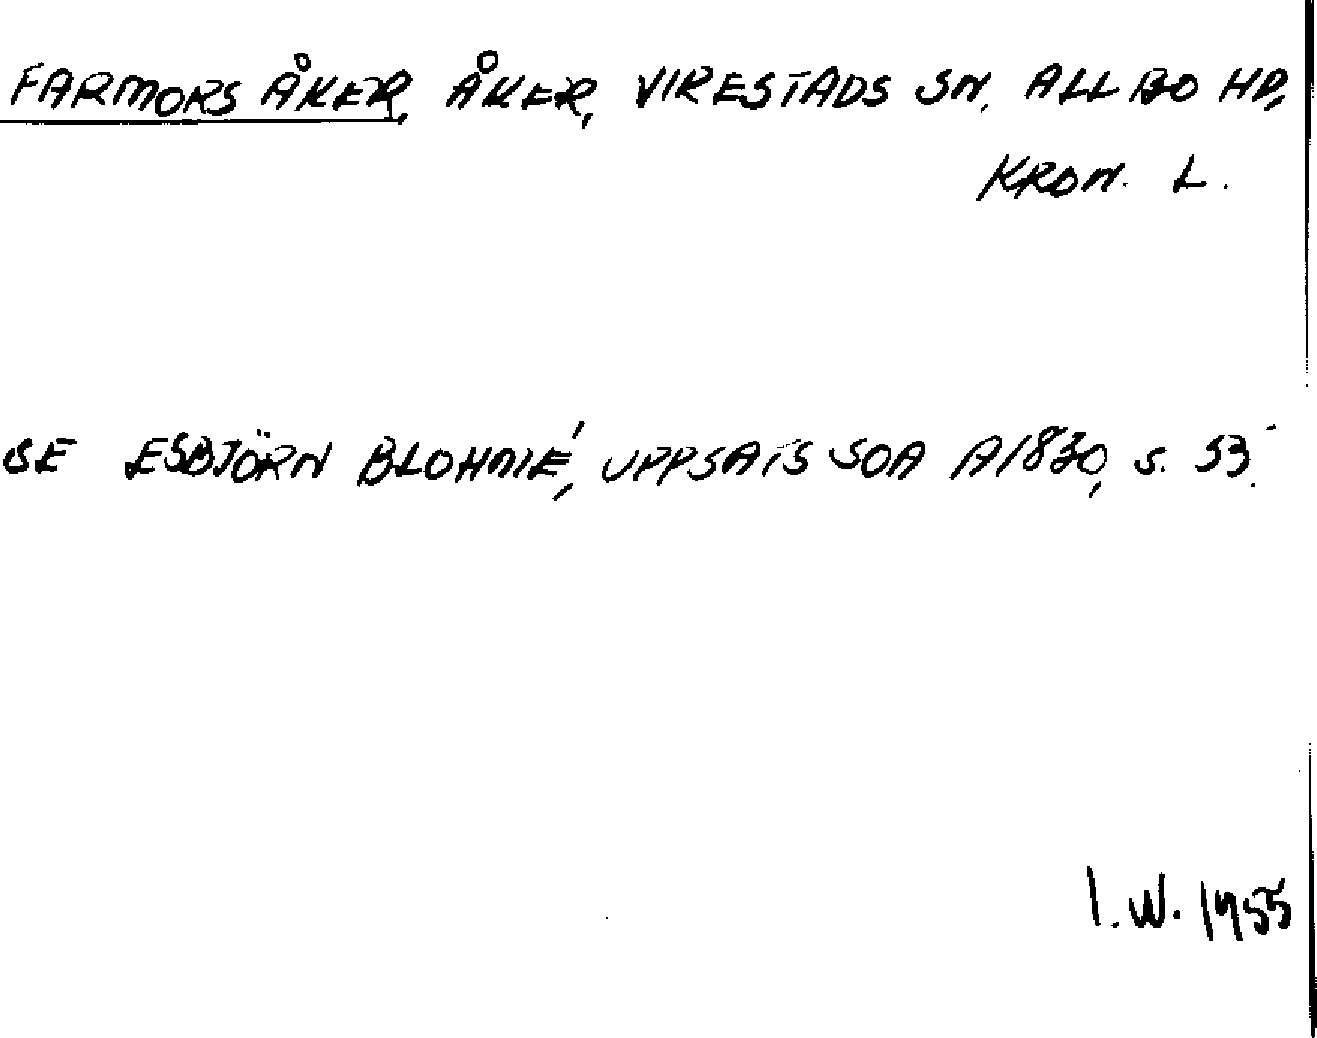 FARMORS ÅKER, ÅKER, VIRESTADS SN. ALLBO HD,
KRON. L.
SE ESBJÖRN BLOHMÉ, UPPSATS SOA A1830, S. 53.
I.W. 1955